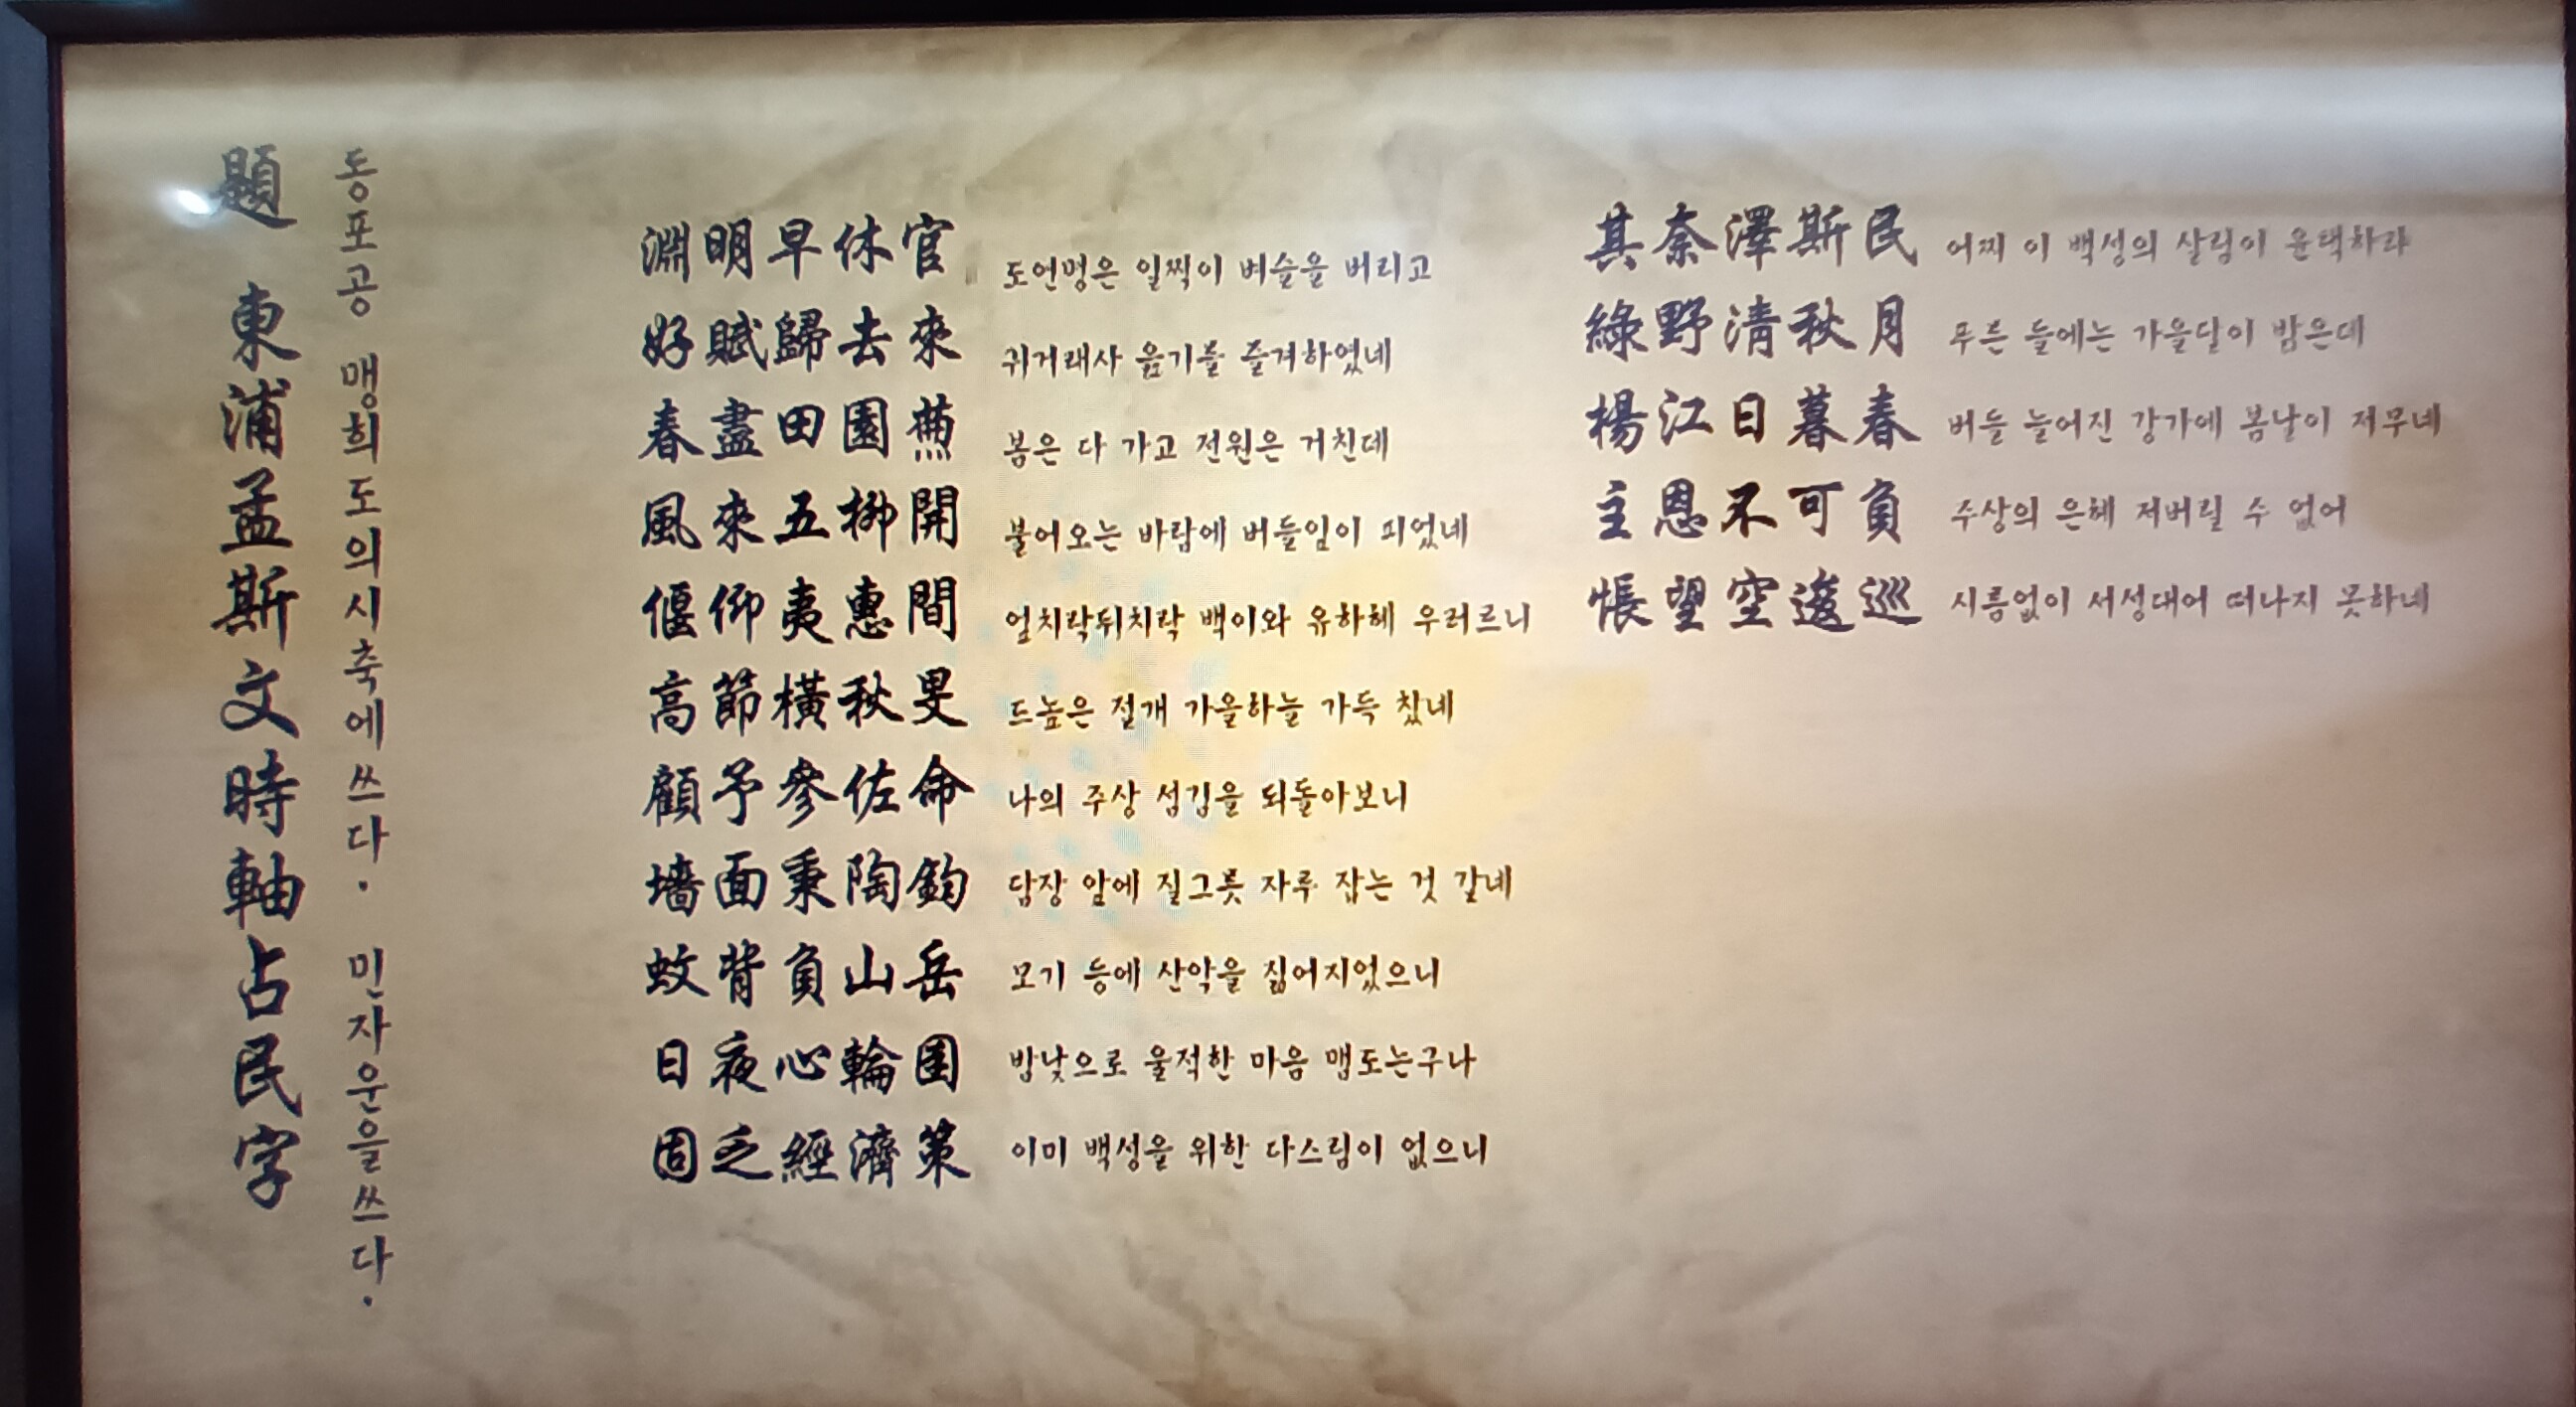 題 東浦孟斯文時軸占民字
동포공 맹희도의시축에쓰다. 민자운을쓰다.
淵明早休官 도연명은 일찍이 벼슬을 버리고
好賦歸去來 귀거래사 읊기를 즐겨하였네
春盡田園蕪 봄은 다 가고 전원은 거친데
風來五柳開 불어오는 바람에 버들잎이 피었네
偃仰夷惠間 엎치락뒤치락 백이와 유하혜 우러르니
高節橫秋旻 드높은 절개 가을하늘 가득 찼네
顧予參佐命 나의 주상 섬김을 되돌아보니
墻面秉陶鈞 담장 앞에 질그릇 자루 잡는 것 같네
蚊背負山岳 모기 등에 산악을 짊어지었으니
日夜心輪囷 밤낮으로 울적한 마음 맴도는구나
固乏經濟策 이미 백성을 위한 다스림이 없으니
其奈澤斯民 어찌 이 백성의 살림이 윤택하랴
綠野淸秋月 푸른 들에는 가을달이 밝은데
楊江日暮春 버들 늘어진 강가에 봄날이 저무네
主恩不可負 주상의 은혜 저버릴 수 없어
悵望空逡巡 시름없이 서성대어 떠나지 못하네